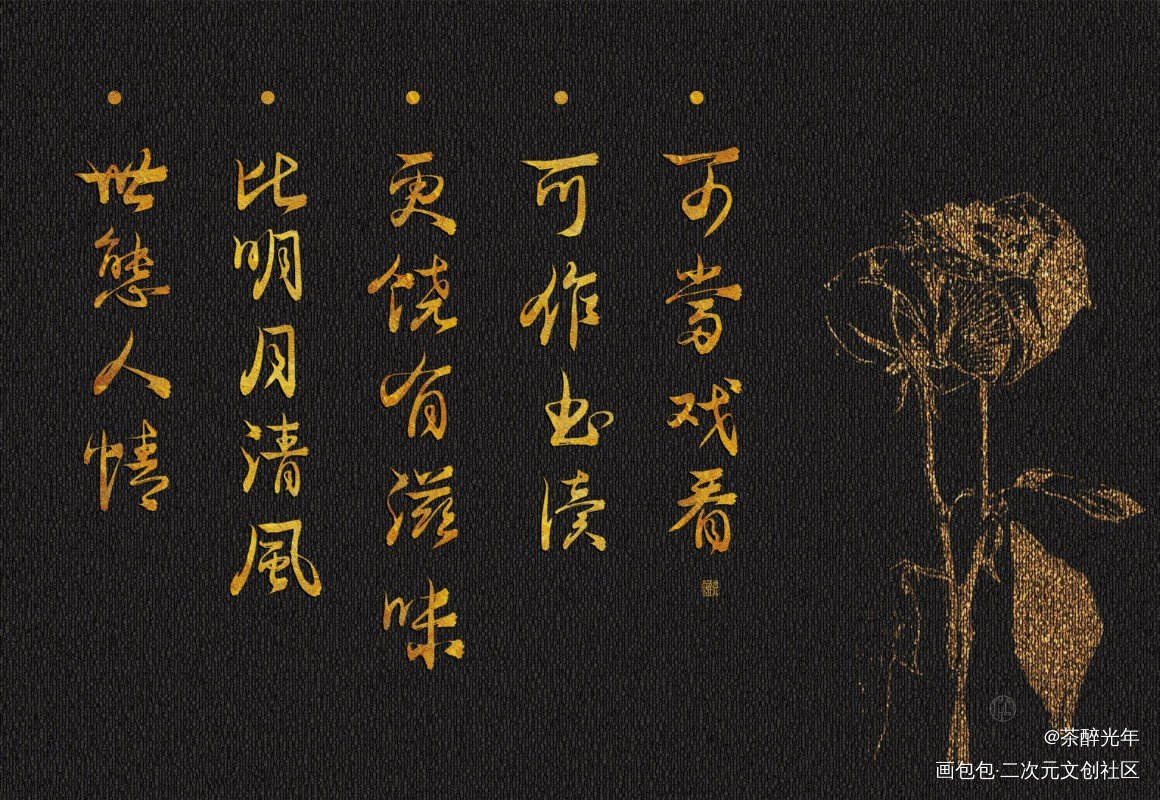 世態人情
比明月清風
更饶有滋味
可作书读
可當戏看
@茶醉光年
画包包·二次元文创社区